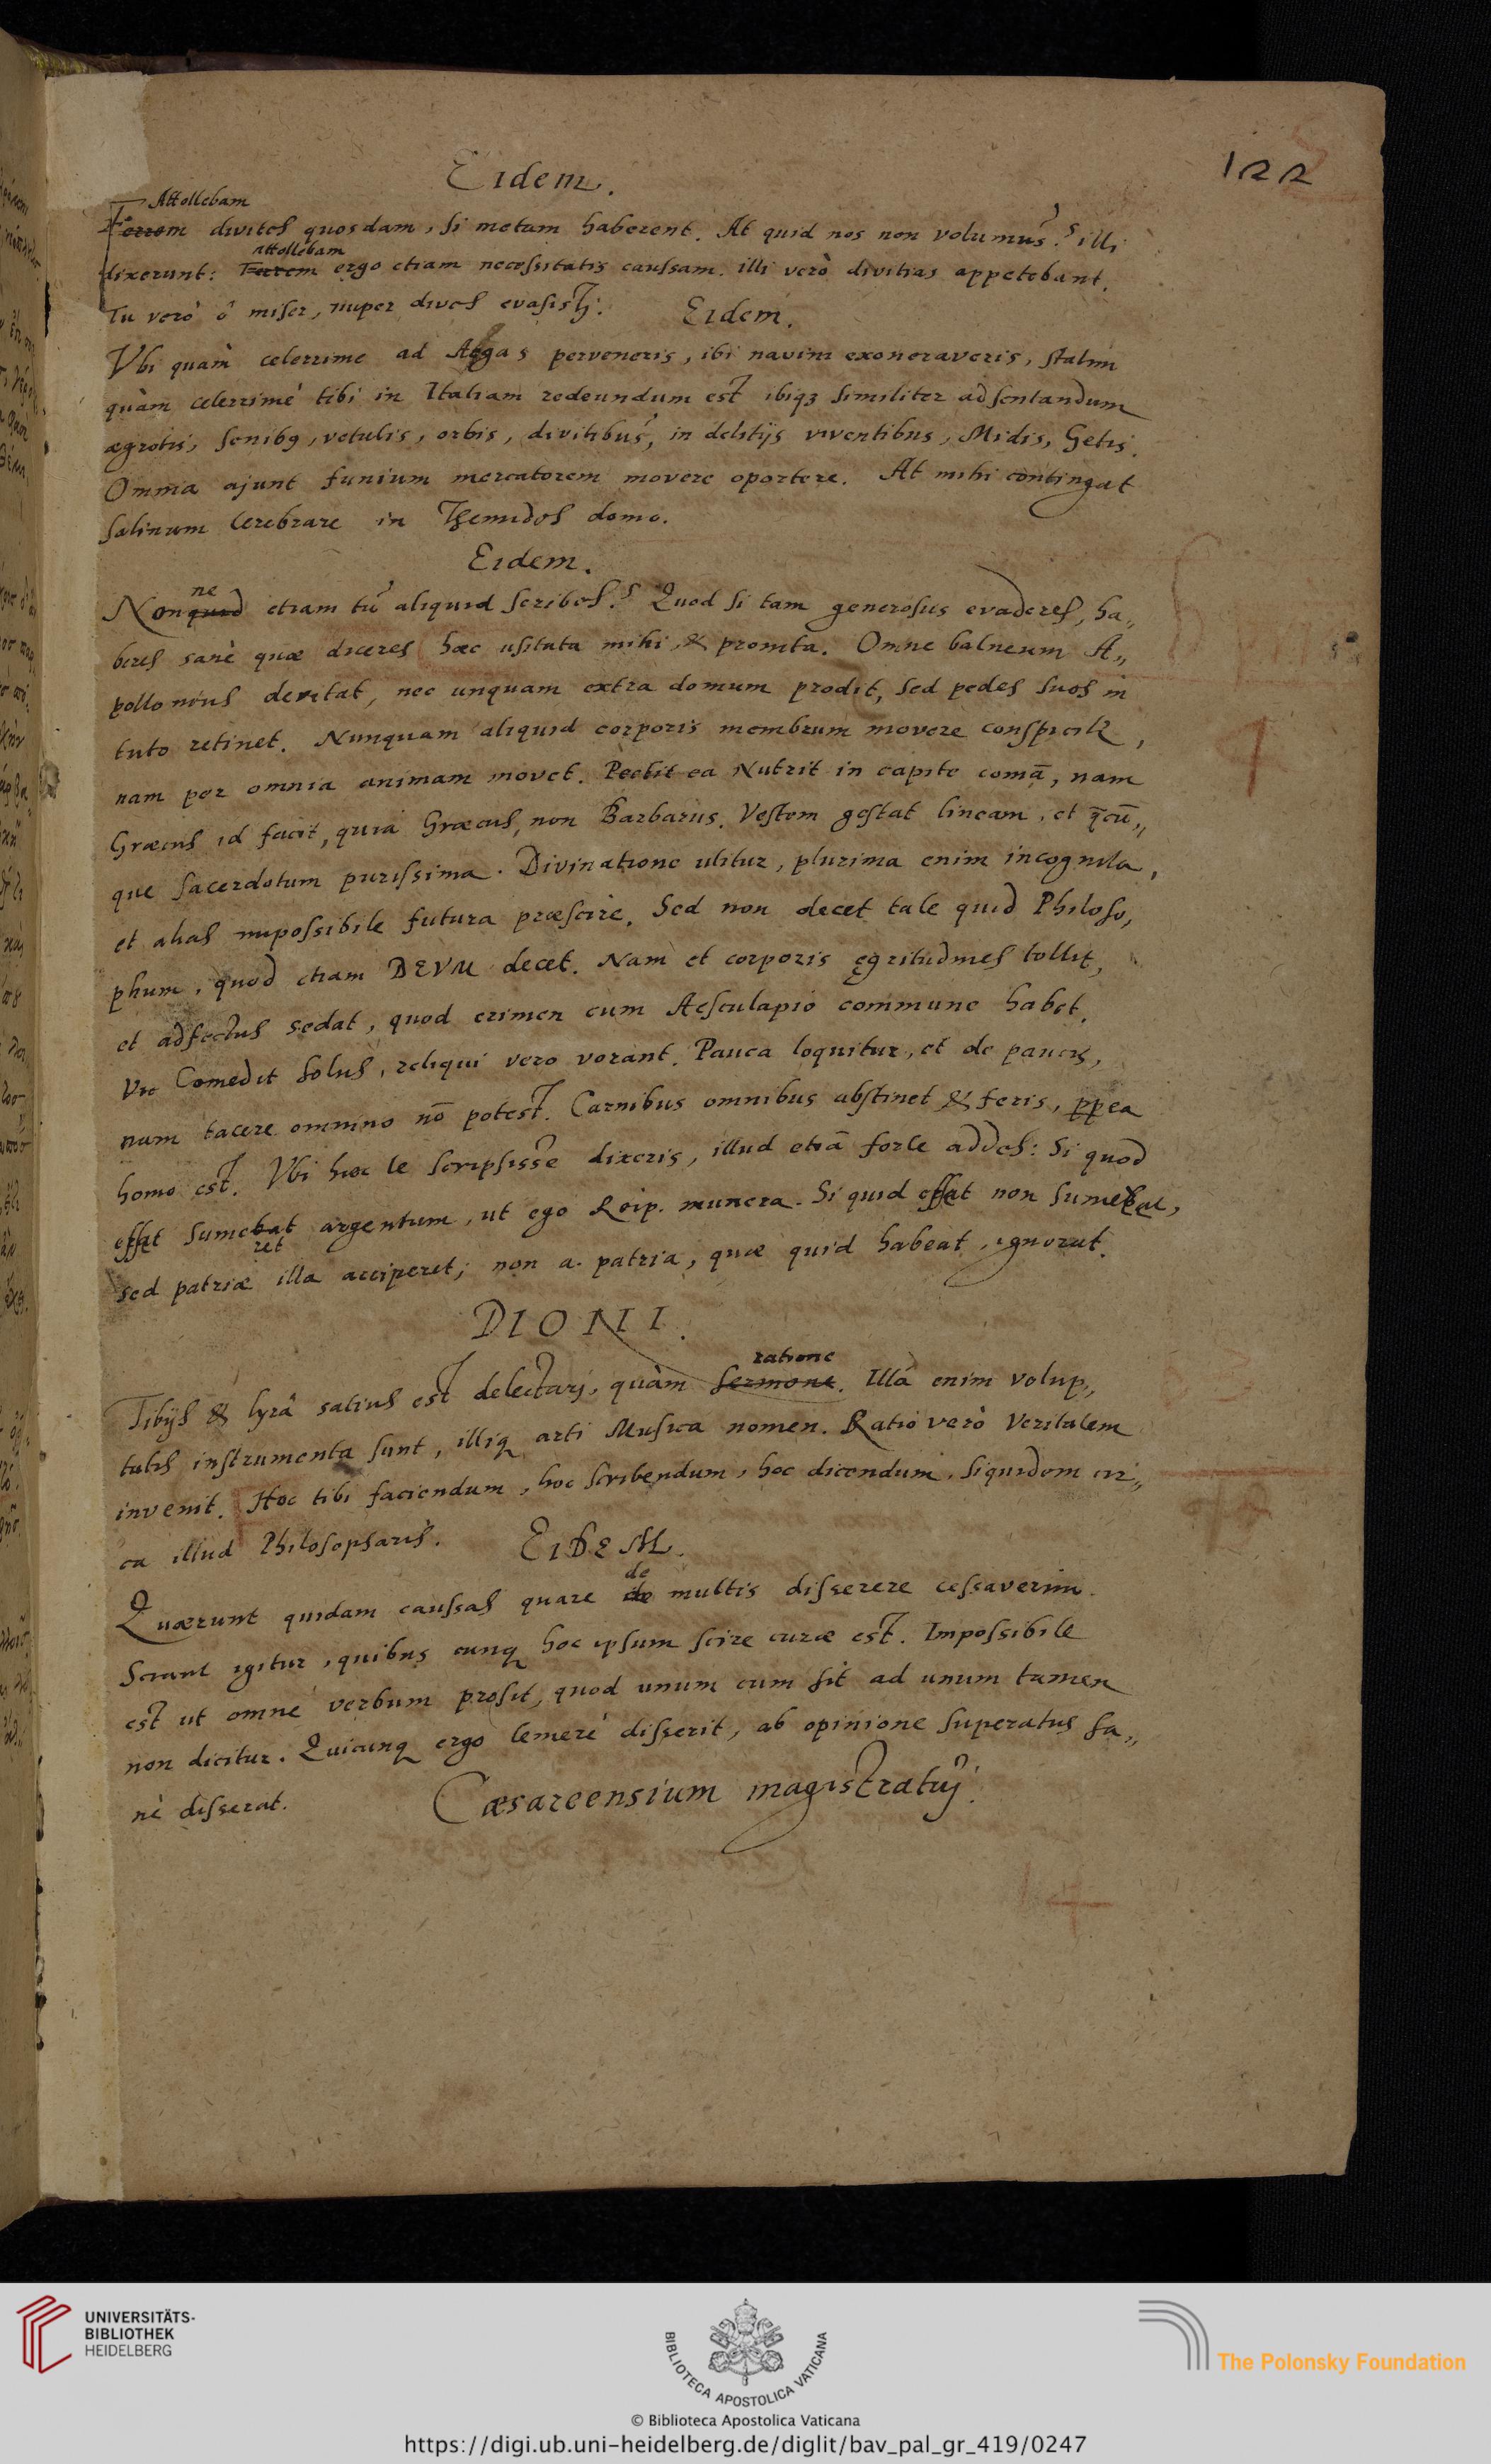 122
Eidem.
Attollebam
Ferrem divites quosdam, si metum haberent. At quid nos non volumus? illi
attollebam
dixerunt: Ferrem ergo etiam necessitatis caussam. illi verò divitias appetebant.
Tu verò ô miser, nuper dives evasisti. Eidem.
Vbi quàm celerrime ad Aegas perveneris, ibi navim exoneraveris, statim
quàm celerrimè tibi in Italiam redeundum est ibiqз similiter adsentandum
ægrotis, senibꝯ, vetulis, orbis, divitibus, in delitijs viventibus, Midis, Getis.
Omnia ajunt funium mercatorem movere oportere. At mihi contingat
salinum cerebrare in Themidos domo.
Eidem.
ne
Nonquid etiam tu aliquid scribes? Quod si tam generosus evaderes, ha„
beres sanè quæ diceres hæc usitata mihi, & promta. Omne balneum A„
pollonius devitat, nec unquam extra domum prodit, sed pedes suos in
tuto retinet. Nunquam aliquid corporis membrum movere conspicit,
nam per omnia animam movet. Pectit ea Nutrit in capite comā, nam
Græcus id facit, quia Græcus, non Barbarus. Vestem gestat lineam, et q̄cū„
que sacerdotum purissima. Divinatione utitur, plurima enim incognita,
et alias impossibile futura præscire. Sed non decet tale quid Philoso,
phum, quod etiam DEVM decet. Nam et corporis ęgritudines tollit,
et adfectus sedat, quod crimen cum Aesculapio commune habet.
Comedit solus, reliqui vero vorant. Pauca loquitur, et de paucis,
nam tacere omnino nō potest. Carnibus omnibus abstinet & feris, ꝓpea
homo est. Vbi hæc te scripsisse dixeris, illud etiā forte addes: Si quod
esset sumebat argentum, ut ego Reip. munera. Si quid esset non sumebat,
ret
sed patriæ illa acciperet; non a patria, quæ quid habeat, ignorat.
DIONI.
ratione
Tibijs & lyrâ satius est delectari, quàm sermone. Illa enim volup„
tatis instrumenta sunt, illiq arti Musica nomen. Ratio verò Veritatem
invenit. Hoc tibi faciendum, hoc scribendum, hoc dicendum, siquidem cir„
ca illud Philosopharis. EIDEM.
de
Quærunt quidam caussas quare de multis disserere cessaverim.
Sciant igitur, quibus cunq hoc ipsum scire curæ est. Impossibile
est ut omne verbum prosit, quod unum cum sit ad unum tamen
non dicitur. Quicunq ergo temerè disserit, ab opinione superatus sa„
nè disserat. Cæsareensium magistratuj.
UNIVERSITÄTS-
BIBLIOTHEK
HEIDELBERG
BIBLIOTECA APOSTOLICA VATICANA
The Polonsky Foundation
© Biblioteca Apostolica Vaticana
https://digi.ub.uni-heidelberg.de/diglit/bav_pal_gr_419/0247